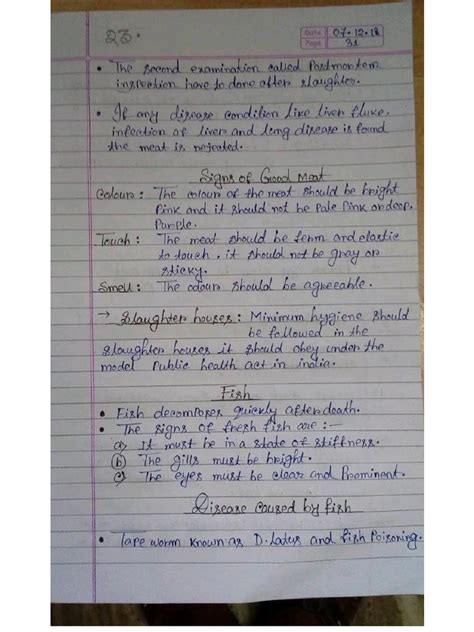 23.
Date 07.12.18
Page 31
• The second examination called Postmortem
inspection have to done after slaughter.
• If any disease condition like liver fluke,
infection of liver and lung disease is found
the meat is rejected.
Signs of Good Meat
Colour : The colour of the meat should be bright
Pink and it should not be Pale Pink or deep
Purple.
Touch : The meat should be ferm and elastic
to touch, it should not be gray or
sticky.
Smell : The odour should be agreeable.
→ Slaughter houses : Minimum hygiene should
be followed in the
slaughter houses it should obey under the
model Public health act in india.
Fish
• Fish decomposes quickly after death.
• The signs of fresh fish are :-
(a) It must be in a state of stiffness.
(b) The gills must be bright.
(c) The eyes must be clear and Prominent.
Disease caused by fish
• Tape worm known as D. Latus and fish Poisoning.